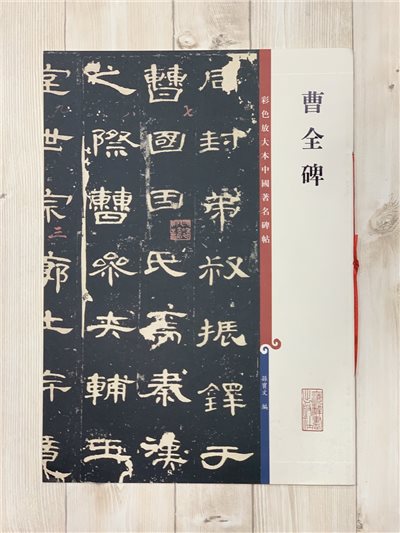 曹全碑
彩色放大本中國著名碑帖
孫寶文 編
同封弟叔振鐸于
曹國因氏焉秦漢
之際曹參夾輔王
室世宗廓土斥竟